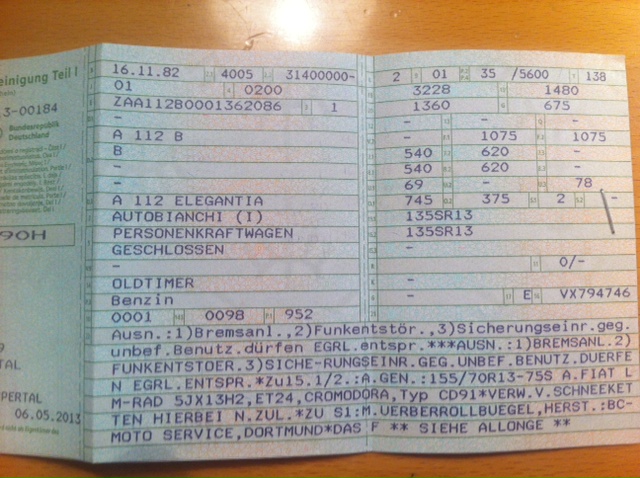 einigung Teil I
3-00184
Bundesrepublik
Deutschland
90H
TAL
PERTAL
06.05.2013
16.11.82 4005 31400000-
01 0200
ZAA112B0001362086 1
-
A 112 B
B
-
-
A 112 ELEGANTIA
AUTOBIANCHI (I)
PERSONENKRAFTWAGEN
GESCHLOSSEN
-
OLDTIMER
Benzin
0001 0098 952
2 01 35 /5600 138
3228 1480
1360 675
- - -
- 1075 1075
540 620 -
540 620 -
69 - 78
745 375 2 -
135SR13
135SR13
-
0/-
-
- E VX794746
Ausn.:1)Bremsanl.,2)Funkentstör.,3)Sicherungseinr.geg.
unbef.Benutz.dürfen EGRL.entspr.***AUSN.:1)BREMSANL.2)
FUNKENTSTOER.3)SICHE-RUNGSEINR.GEG.UNBEF.BENUTZ.DUERFE
N EGRL.ENTSPR.*Zu15.1/2.:A.GEN.:155/70R13-75S A.FIAT L
M-RAD 5JX13H2,ET24,CROMODORA,Typ CD91*VERW.V.SCHNEEKET
TEN HIERBEI N.ZUL.*ZU S1:M.UERBERROLLBUEGEL,HERST.:BC-
MOTO SERVICE,DORTMUND*DAS F ** SIEHE ALLONGE **